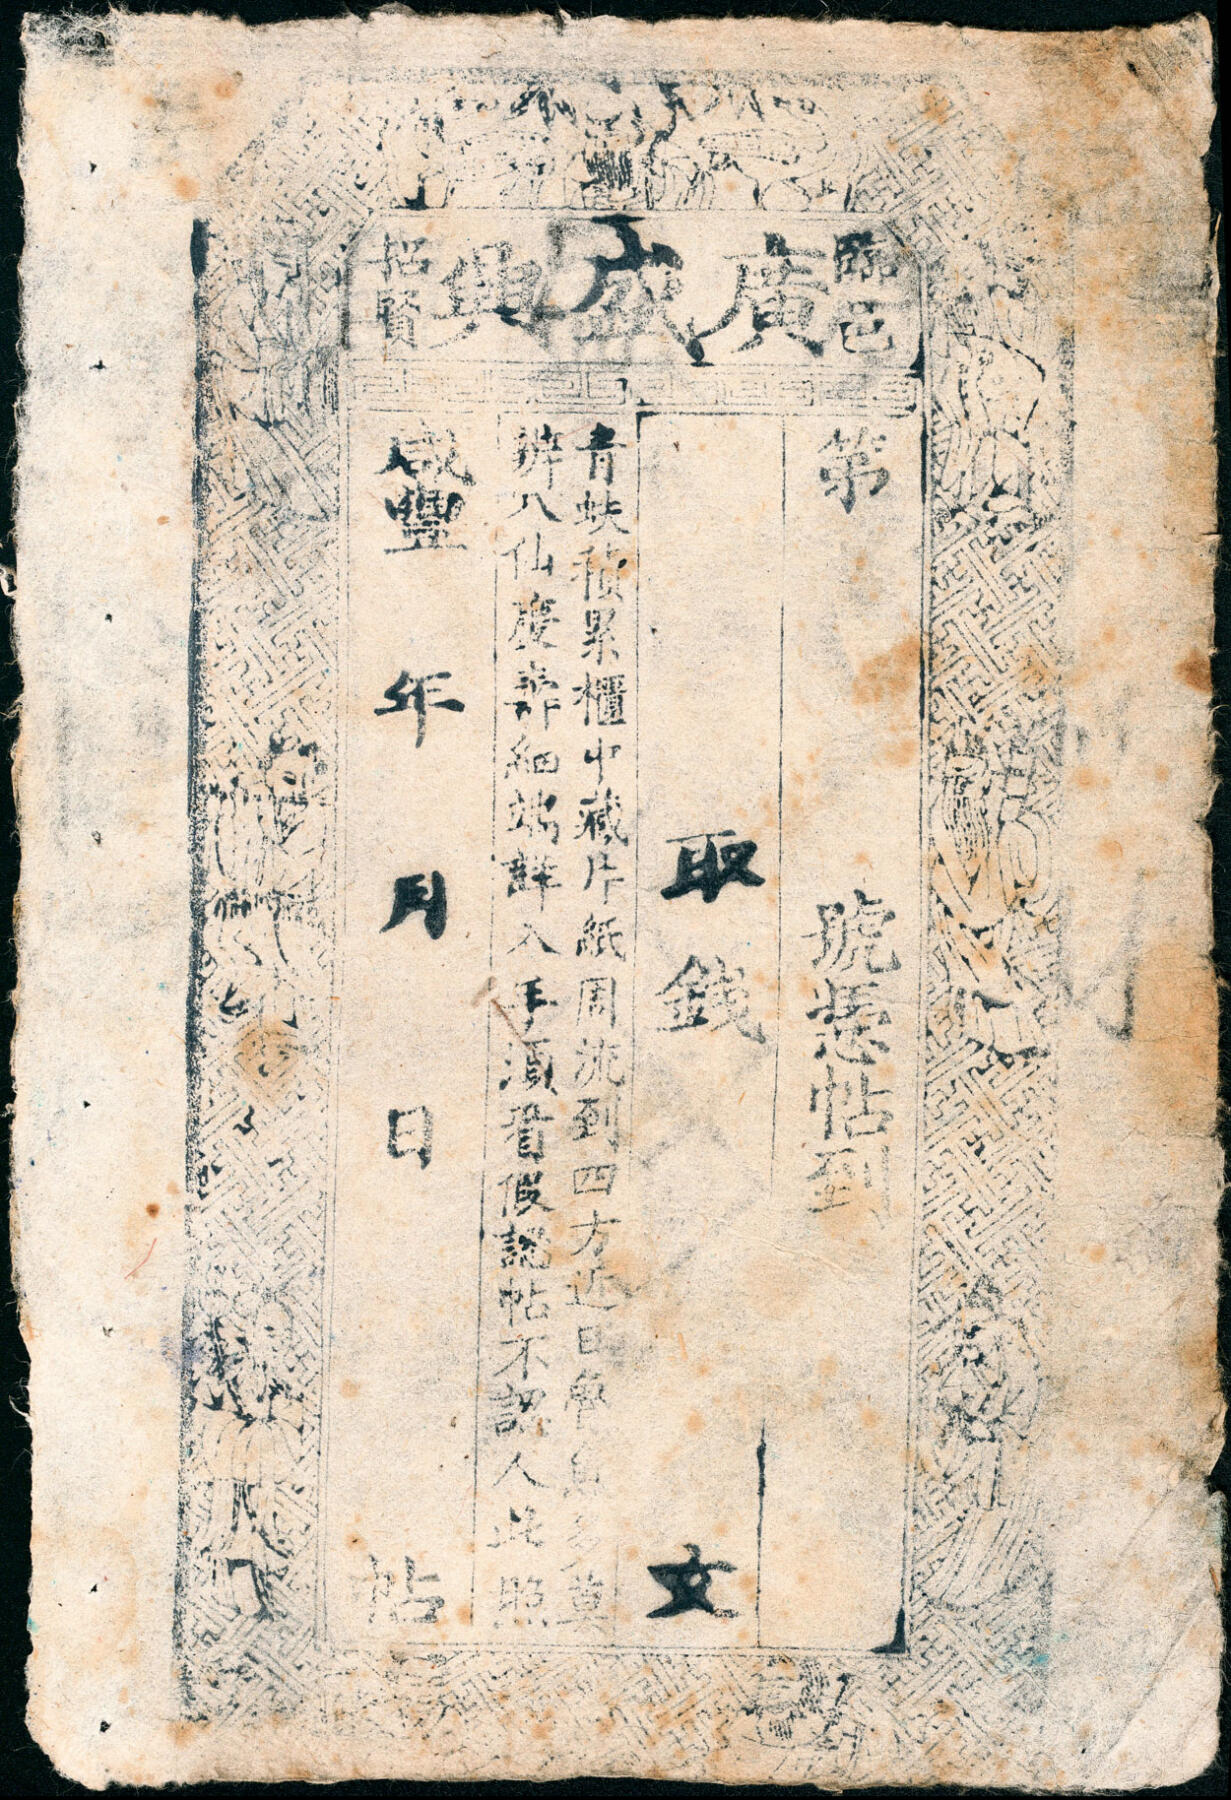 臨邑
廣盛興
招賢
第 號憑帖到
取錢 文
青蚨積累櫃中藏片紙周流到四方近日 莫
辨八仙慶 細端詳入手須看假認帖不認人此照
咸豐 年 月 日 帖